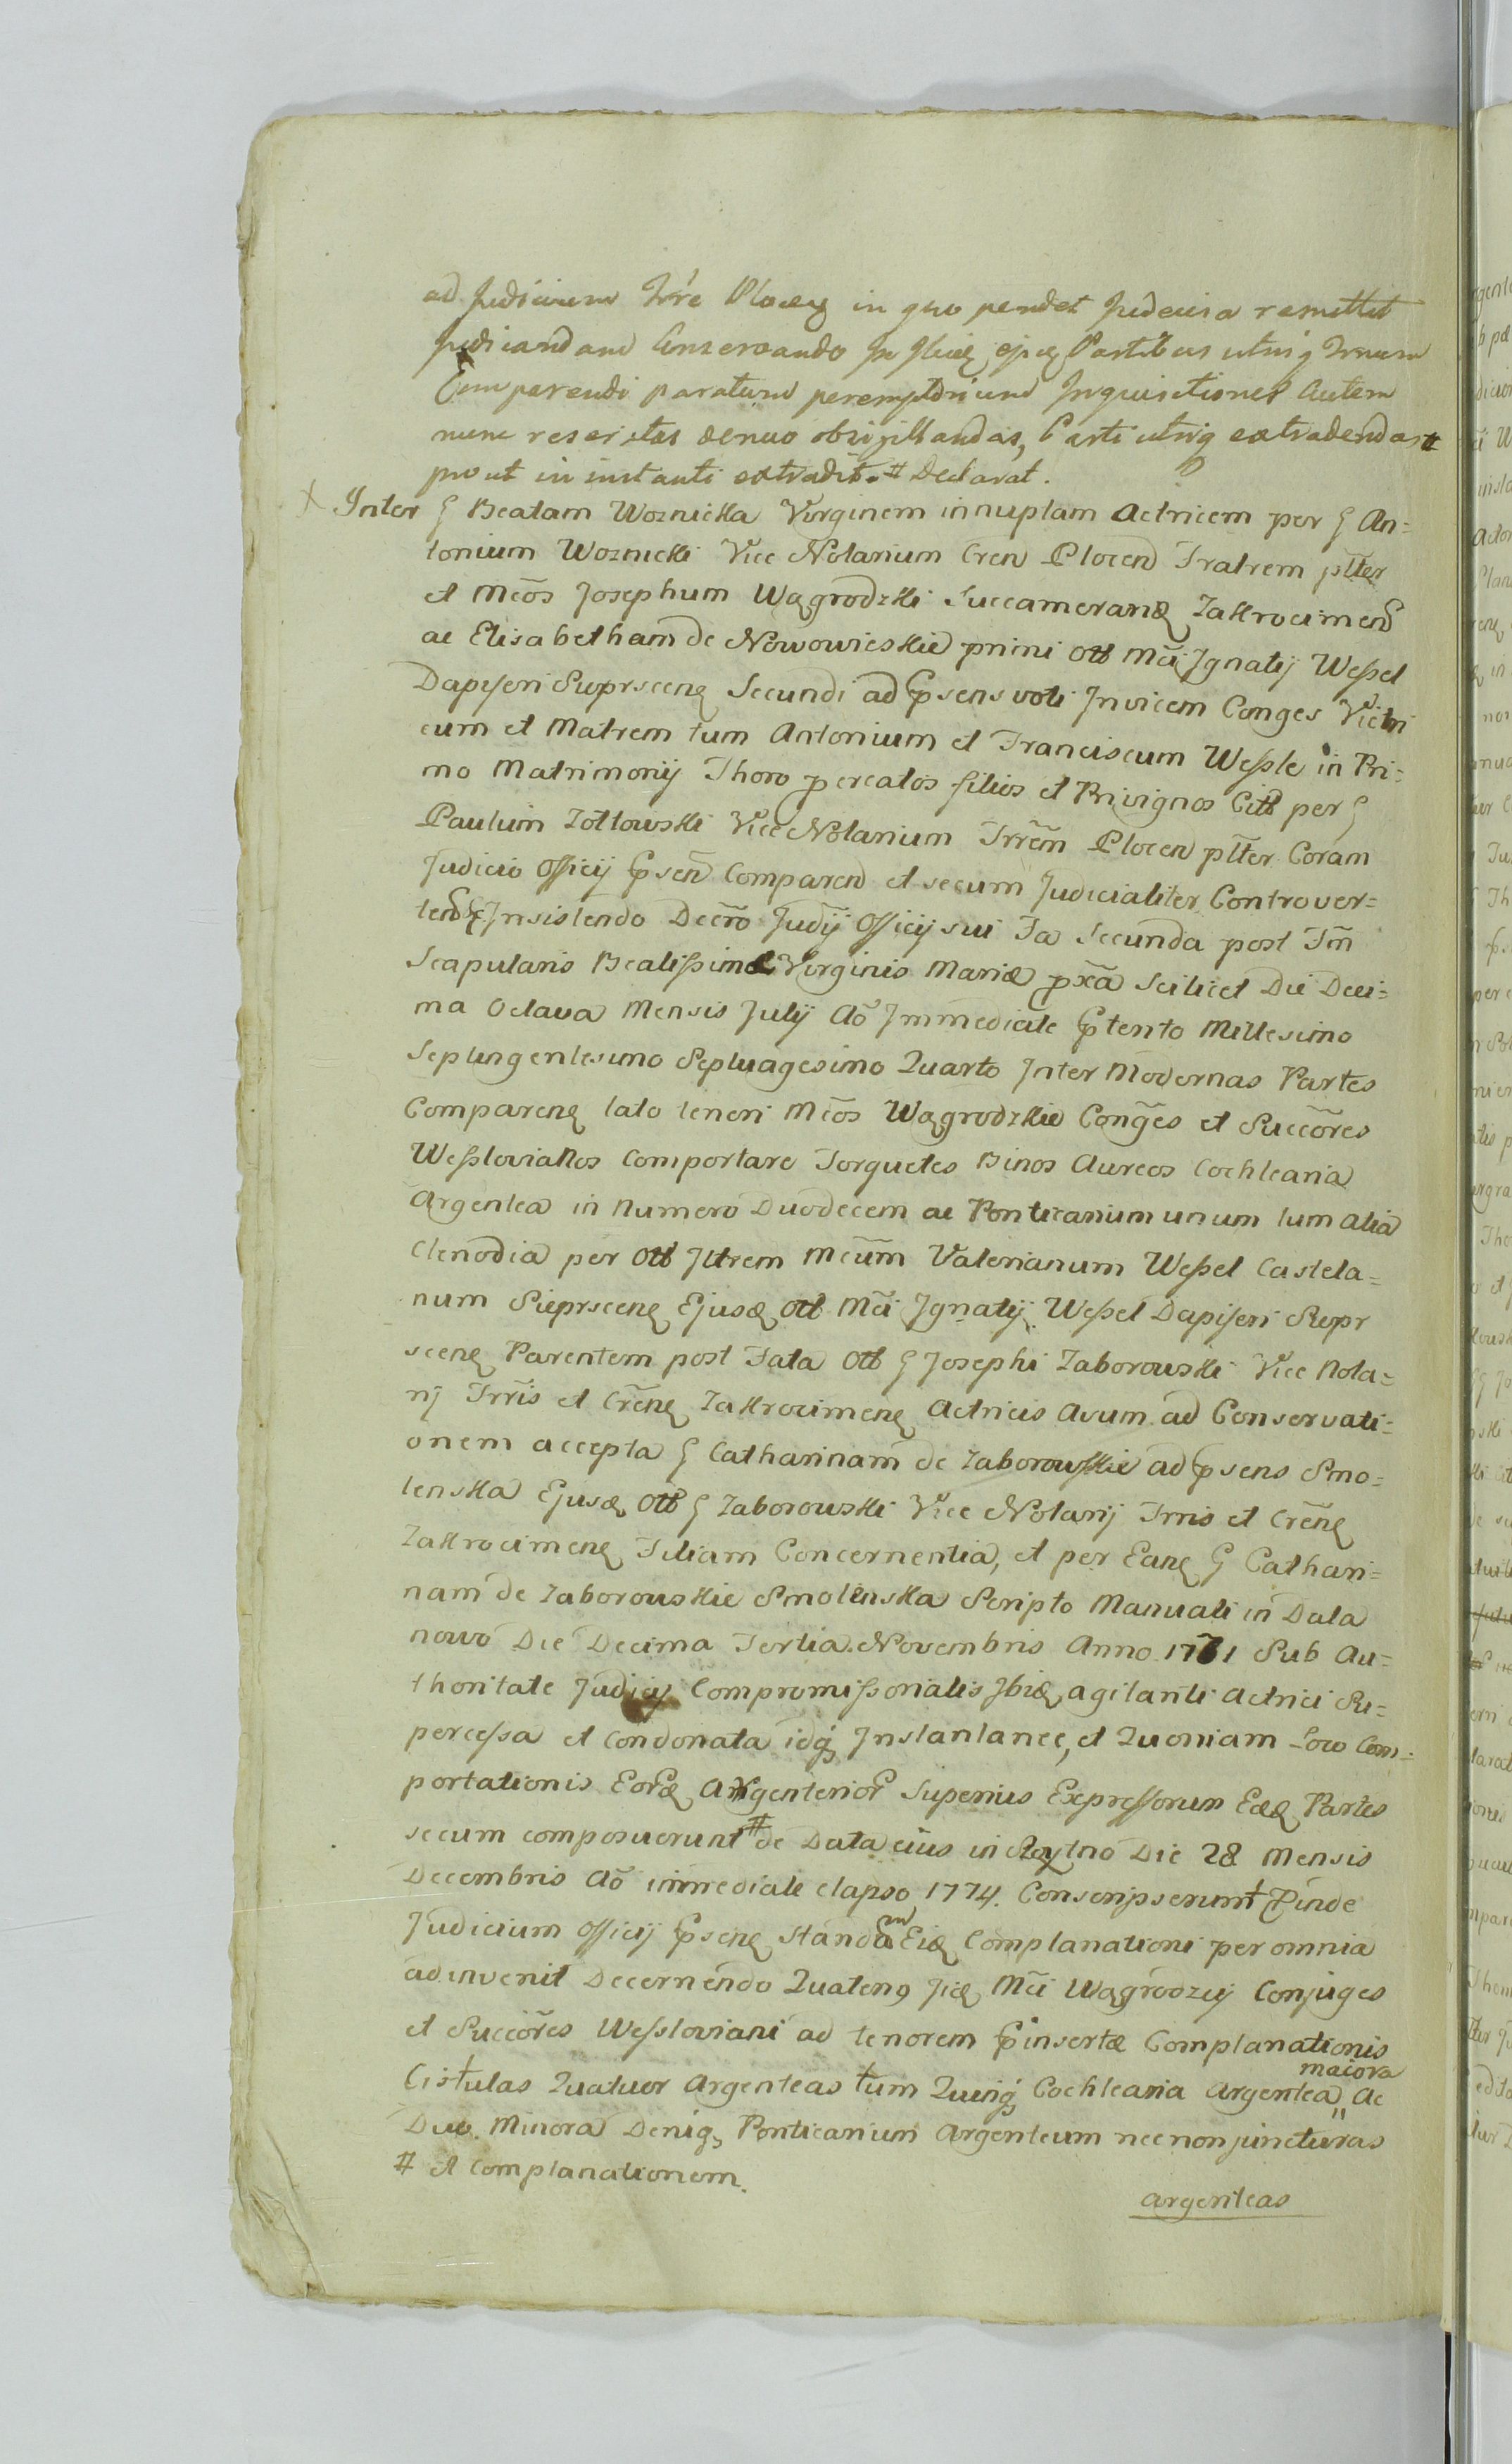 ad Judicium Trre Plocen in quo pendet remittit
Judicandam Conservando Partibus utriq
Comparendi paratum peremptorium Inquisitiones autem
nunc reseratas denuo obsigillandas, Parti utriq extradendas #
prout in instanti extradit. # Declarat.
Inter G Beatam Woznicka Virginem innuptam Actricem per G An=
tonium Woznicki Vice Notarium Cren Plocen Fratrem plter
et Mcos Josephum Wągrodzki Succamerariū Zakrocimen
ac Elisabetham de Nowowieskie primi Olb Mci Ignatij Weſsel
Dapiferi Sieprscen Secundi ad Psens voti Invicem Conges Vitri
cum et Matrem tum Antonium et Franciscum Weſsle in Pri=
mo Matrimonij Thoro pcreatos filios et Privignos Citt per G
Paulum Zottowski Vice Notarium Trrem Plocen plter Coram
Judicio Officij Psen Comparen et secum Judicialiter Controver=
ten Insistendo Decro Judij Officij sui Fa Secunda post Fm
Scapularis Beatiſsimæ Virginis Mariæ pxa Scilicet Die Deci=
ma Octava Mensis Julij Ao Immediate Ptento Millesimo
Septingentesimo Septuagesimo Quarto Inter Modernas Partes
Comparen lato teneri Mcos Wągrodzkie Conges et Succores
Weſslovianos Comportare Torquetes Binos Aureos Cochlearia
Argentea in Numero Duodecem ac Ponticarium unum tum alia
Clenodia per Olb Jltrem Mcum Valerianum Weſsel Castela=
num Sieprscen Ejusd Olb Mci Ignatij Weſsel Dapiferi Siepr
scen Parentem post Fata Olb G Josephi Zaborowski Vice Nota=
rij Trris et Cren Zakrocimen Actricis Avum ad Conservati=
onem accepta G Catharinam de Zaborowſkie ad Psens Smo=
lenska Ejusd Olb G Zaborowski Vice Notarij Trris et Cren
Zakrocimen Filiam Concernentia, et per Ean G Cathari=
nam de Zaborowskie Smolenska Scripto Manuali in Data
nowo Die Decima Tertia Novembris Anno 1771 Sub Au=
thoritate Judicij Compromiſsorialis Ibid agitanti Actrici Su=
perceſsa et Condonata idq Instantanee, et Quoniam Loco Com=
portationis Eord Argenterior Superius Expreſsorum Eæd Partes
secum composuerunt # de Data eius in Die 28 Mensis
Decembris Ao immediate elapso 1774. Conscripserunt Pinde
Judicium Officij Psen standam Eid Complanationi per omnia
adinvenit Decernendo Quaten9 Jid Mci Wągrodzcy Conjuges
et Succores Weſsloviani ad tenorem Pinsertæ Complanationis
Cistulas Quatuor Argenteas tum Quinq Cochlearia Argentea maiora Ac
Duo Minora Deniq, Ponticarium Argenteum nec non juncturas
# et Complanationem.
argenteas